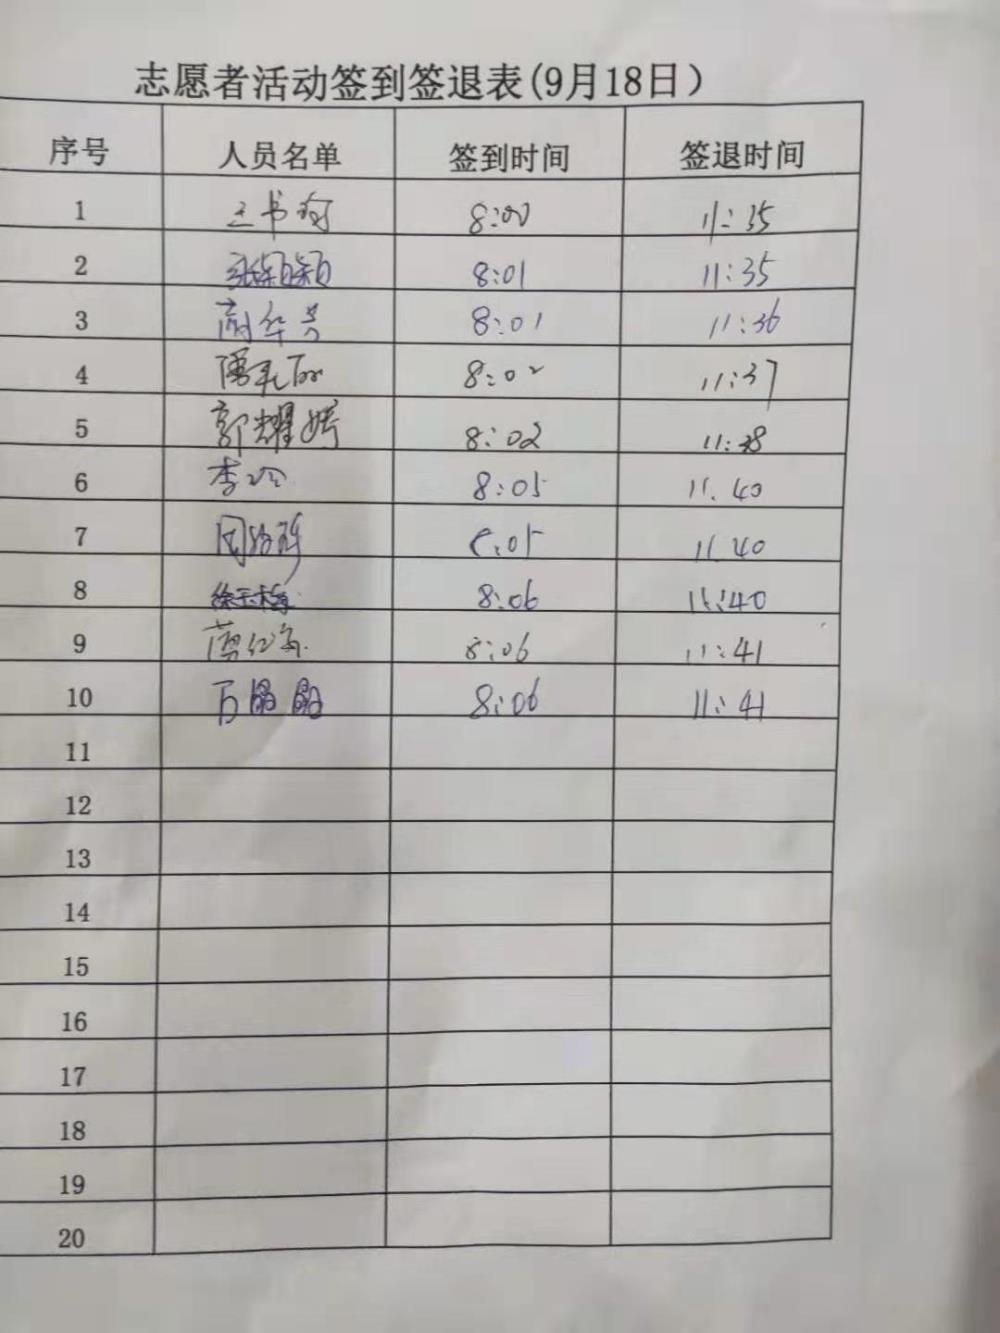 志愿者活动签到签退表(9月18日)
序号 人员名单 签到时间 签退时间
1 王书 8:00 11:35
2 张颖颖 8:01 11:35
3 华 8:01 11:36
4 8:02 11:37
5 郭耀娉 8:02 11:38
6 李 8:05 11.40
7 8:05 11.40
8 徐玉梅 8:06 11:40
9 8:06 11:41
10 万晶晶 8:06 11:41
11
12
13
14
15
16
17
18
19
20